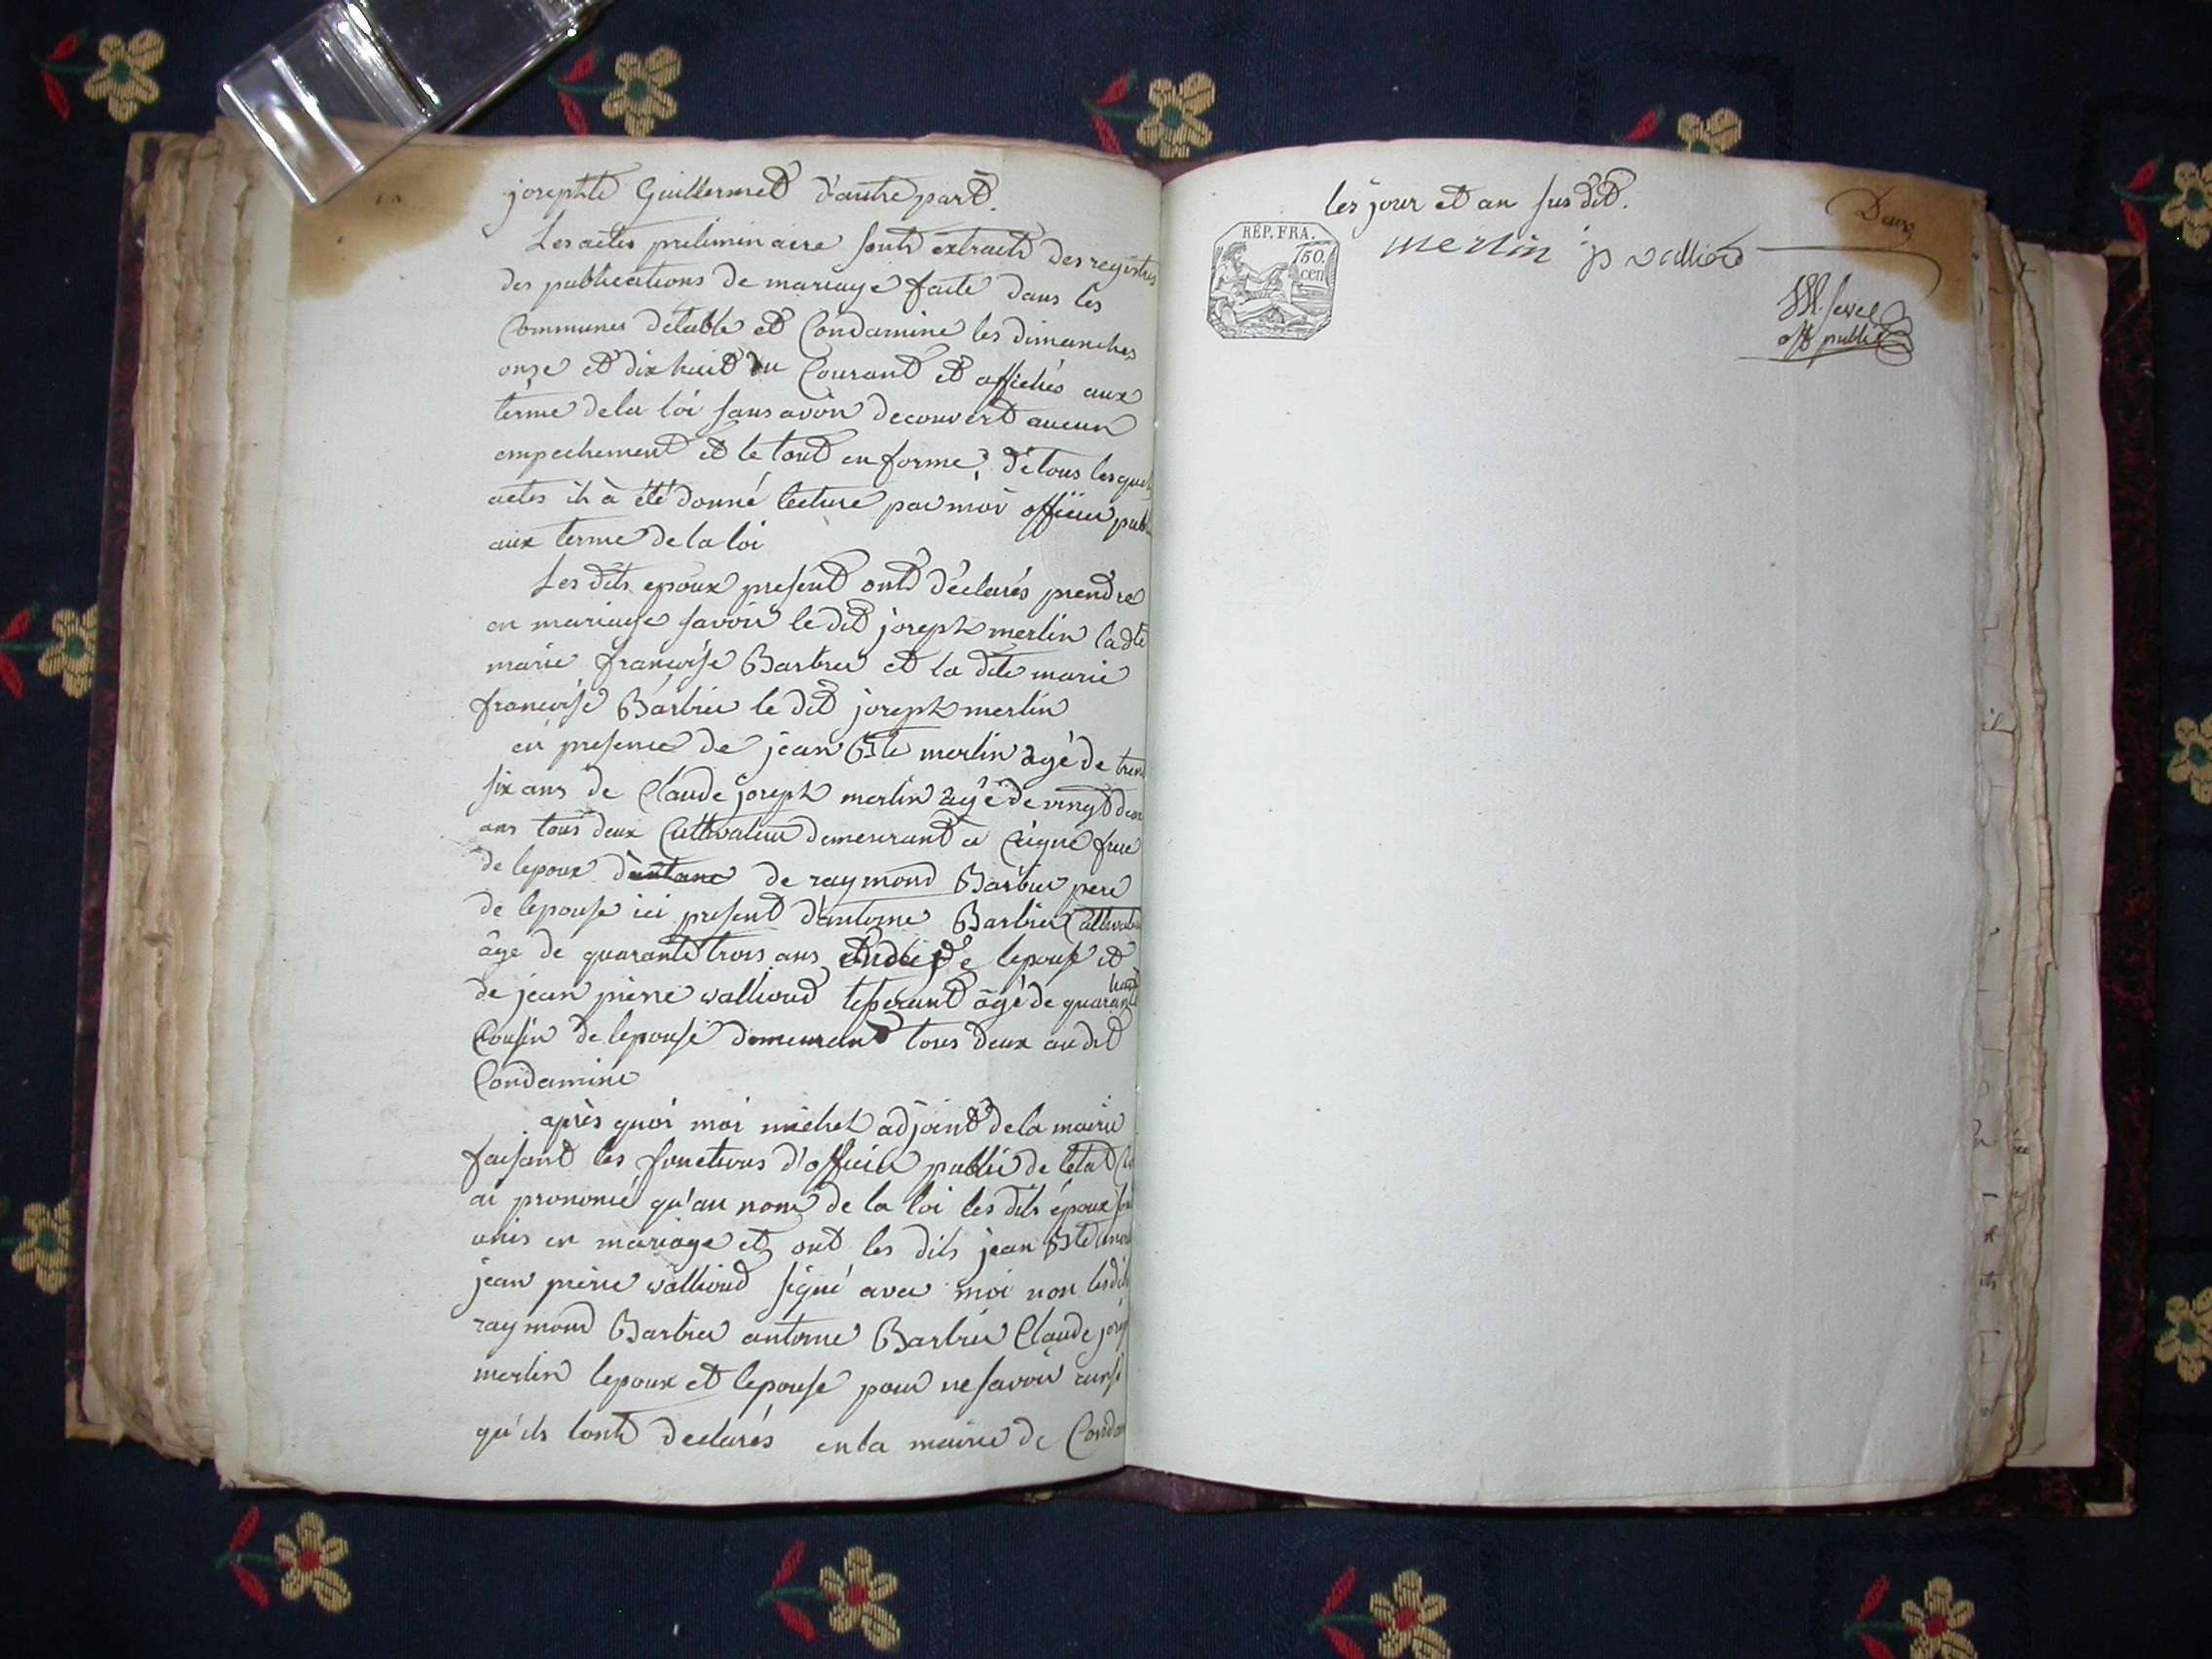 josephte Guillermet d'autre part.
Les actes preliminaire sont extraits des registres
des publications de mariage faite dans les
Communes détable et Condamine les dimanches
onze et dix huit du Courant et affichés aux
terme de la loi sans avoir decouvert aucun
empechement et le tout en forme, de tous lesquels
actes il à été donné lecture par moi officier publi
aux terme de la loi
Les dits epoux present ont déclarés prendre
en mariage savoir le dit joseph merlin ladte
marie françoise Barbier et la dite marie
françoise Barbier le dit joseph merlin
en presence de jean Bte merlin agé de trent
six ans de Claude joseph merlin agé de vingt deux
ans tous deux Cultivateur demeurant a frere
de lepoux de raymond Barbier pere
de lepouse ici present d'antoine Barbier Cultivateur
âge de quarante trois ans de lepouse et
de jean pierre vallioud âgé de quarante
Cousin de lepouse demeurant tous deux au dit
Condamine
après quoi moi michel adjoint de la mairie
faisant les fonctions d'officier public de létat
ai prononcé qu'au nom de la loi les dits époux son
unis en mariage et ont les dits jean Bte merl
jean pierre vallioud signé avec moi non lesdit
raymond Barbier antoine Barbier Claude josep
merlin lepoux et lepouse pour ne savoir ainsi
qu'ils lont declarés en la mairie de Condam
les jour et an susdit.
Deux
RÉP. FRA.
50
cen
merlin jp vallioud
off public